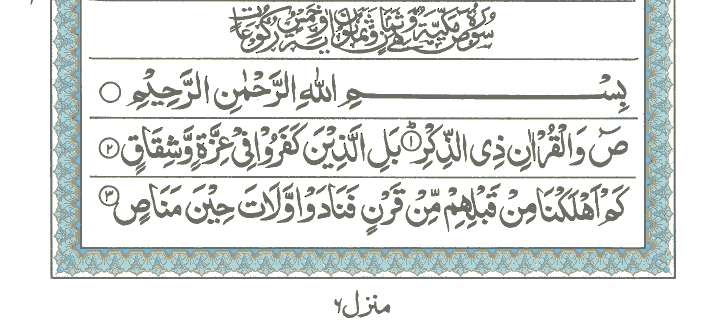 سورة ص مكية وهي ثمان وثمانون آية وخمس ركوعات
بِسْمِ اللهِ الرَّحْمٰنِ الرَّحِيْمِ ○
صٓ وَالْقُرْاٰنِ ذِى الذِّكْرِ ؕ۱ بَلِ الَّذِيْنَ كَفَرُوْا فِىْ عِزَّةٍ وَّشِقَاقٍ ۲
كَمْ اَهْلَكْنَا مِنْ قَبْلِهِمْ مِّنْ قَرْنٍ فَنَادَوْا وَّلَاتَ حِيْنَ مَنَاصٍ ۳
منزل ۶